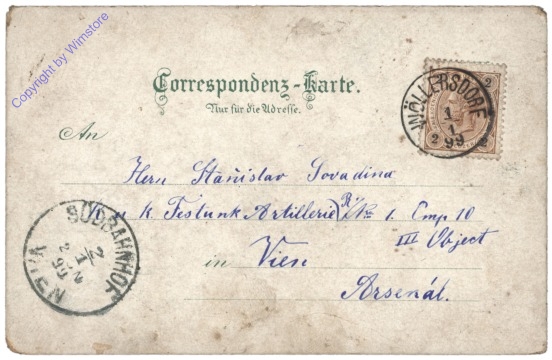 Copyright by Wimstore
Correspondenz-Karte.
Nur für die Adresse.
2
WÖLLERSDORF
1
1
99
2
2
An
Herr Stanislav Sovadina
k. Festunk Artillerie 1. Cmp 10
III Object
in Vien
Arsenál.
SÜDBAHNHOF
WIEN
2
1
99
2